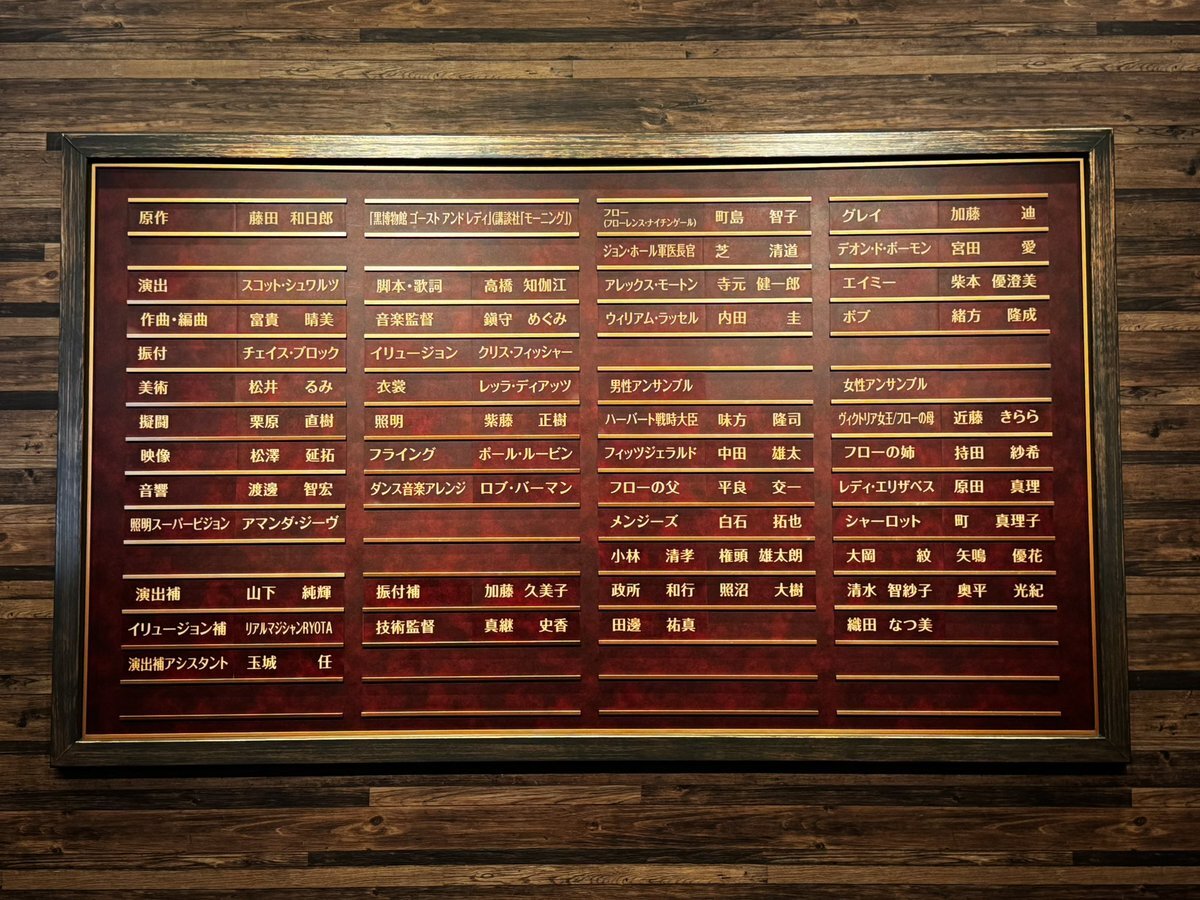 原作 藤田 和日郎
演出 スコット・シュワルツ
作曲・編曲 富貴 晴美
振付 チェイス・ブロック
美術 松井 るみ
擬闘 栗原 直樹
映像 松澤 延拓
音響 渡邉 智宏
照明スーパービジョン アマンダ・ジーヴ
演出補 山下 純輝
イリュージョン補 リアルマジシャンRYOTA
演出補アシスタント 玉城 任
「黒博物館 ゴースト アンド レディ」(講談社「モーニング」)
脚本・歌詞 高橋 知伽江
音楽監督 鎭守 めぐみ
イリュージョン クリス・フィッシャー
衣裳 レッラ・ディアッツ
照明 紫藤 正樹
フライング ポール・ルービン
ダンス音楽アレンジ ロブ・バーマン
振付補 加藤 久美子
技術監督 真継 史香
フロー
(フローレンス・ナイチンゲール) 町島 智子
ジョン・ホール軍医長官 芝 清道
アレックス・モートン 寺元 健一郎
ウィリアム・ラッセル 内田 圭
男性アンサンブル
ハーバート戦時大臣 味方 隆司
フィッツジェラルド 中田 雄太
フローの父 平良 交一
メンジーズ 白石 拓也
小林 清孝 権頭 雄太朗
政所 和行 照沼 大樹
田邊 祐真
グレイ 加藤 迪
デオン・ド・ボーモン 宮田 愛
エイミー 柴本 優澄美
ボブ 緒方 隆成
女性アンサンブル
ヴィクトリア女王/フローの母 近藤 きらら
フローの姉 持田 紗希
レディ・エリザベス 原田 真理
シャーロット 町 真理子
大岡 紋 矢鳴 優花
清水 智紗子 奥平 光紀
織田 なつ美